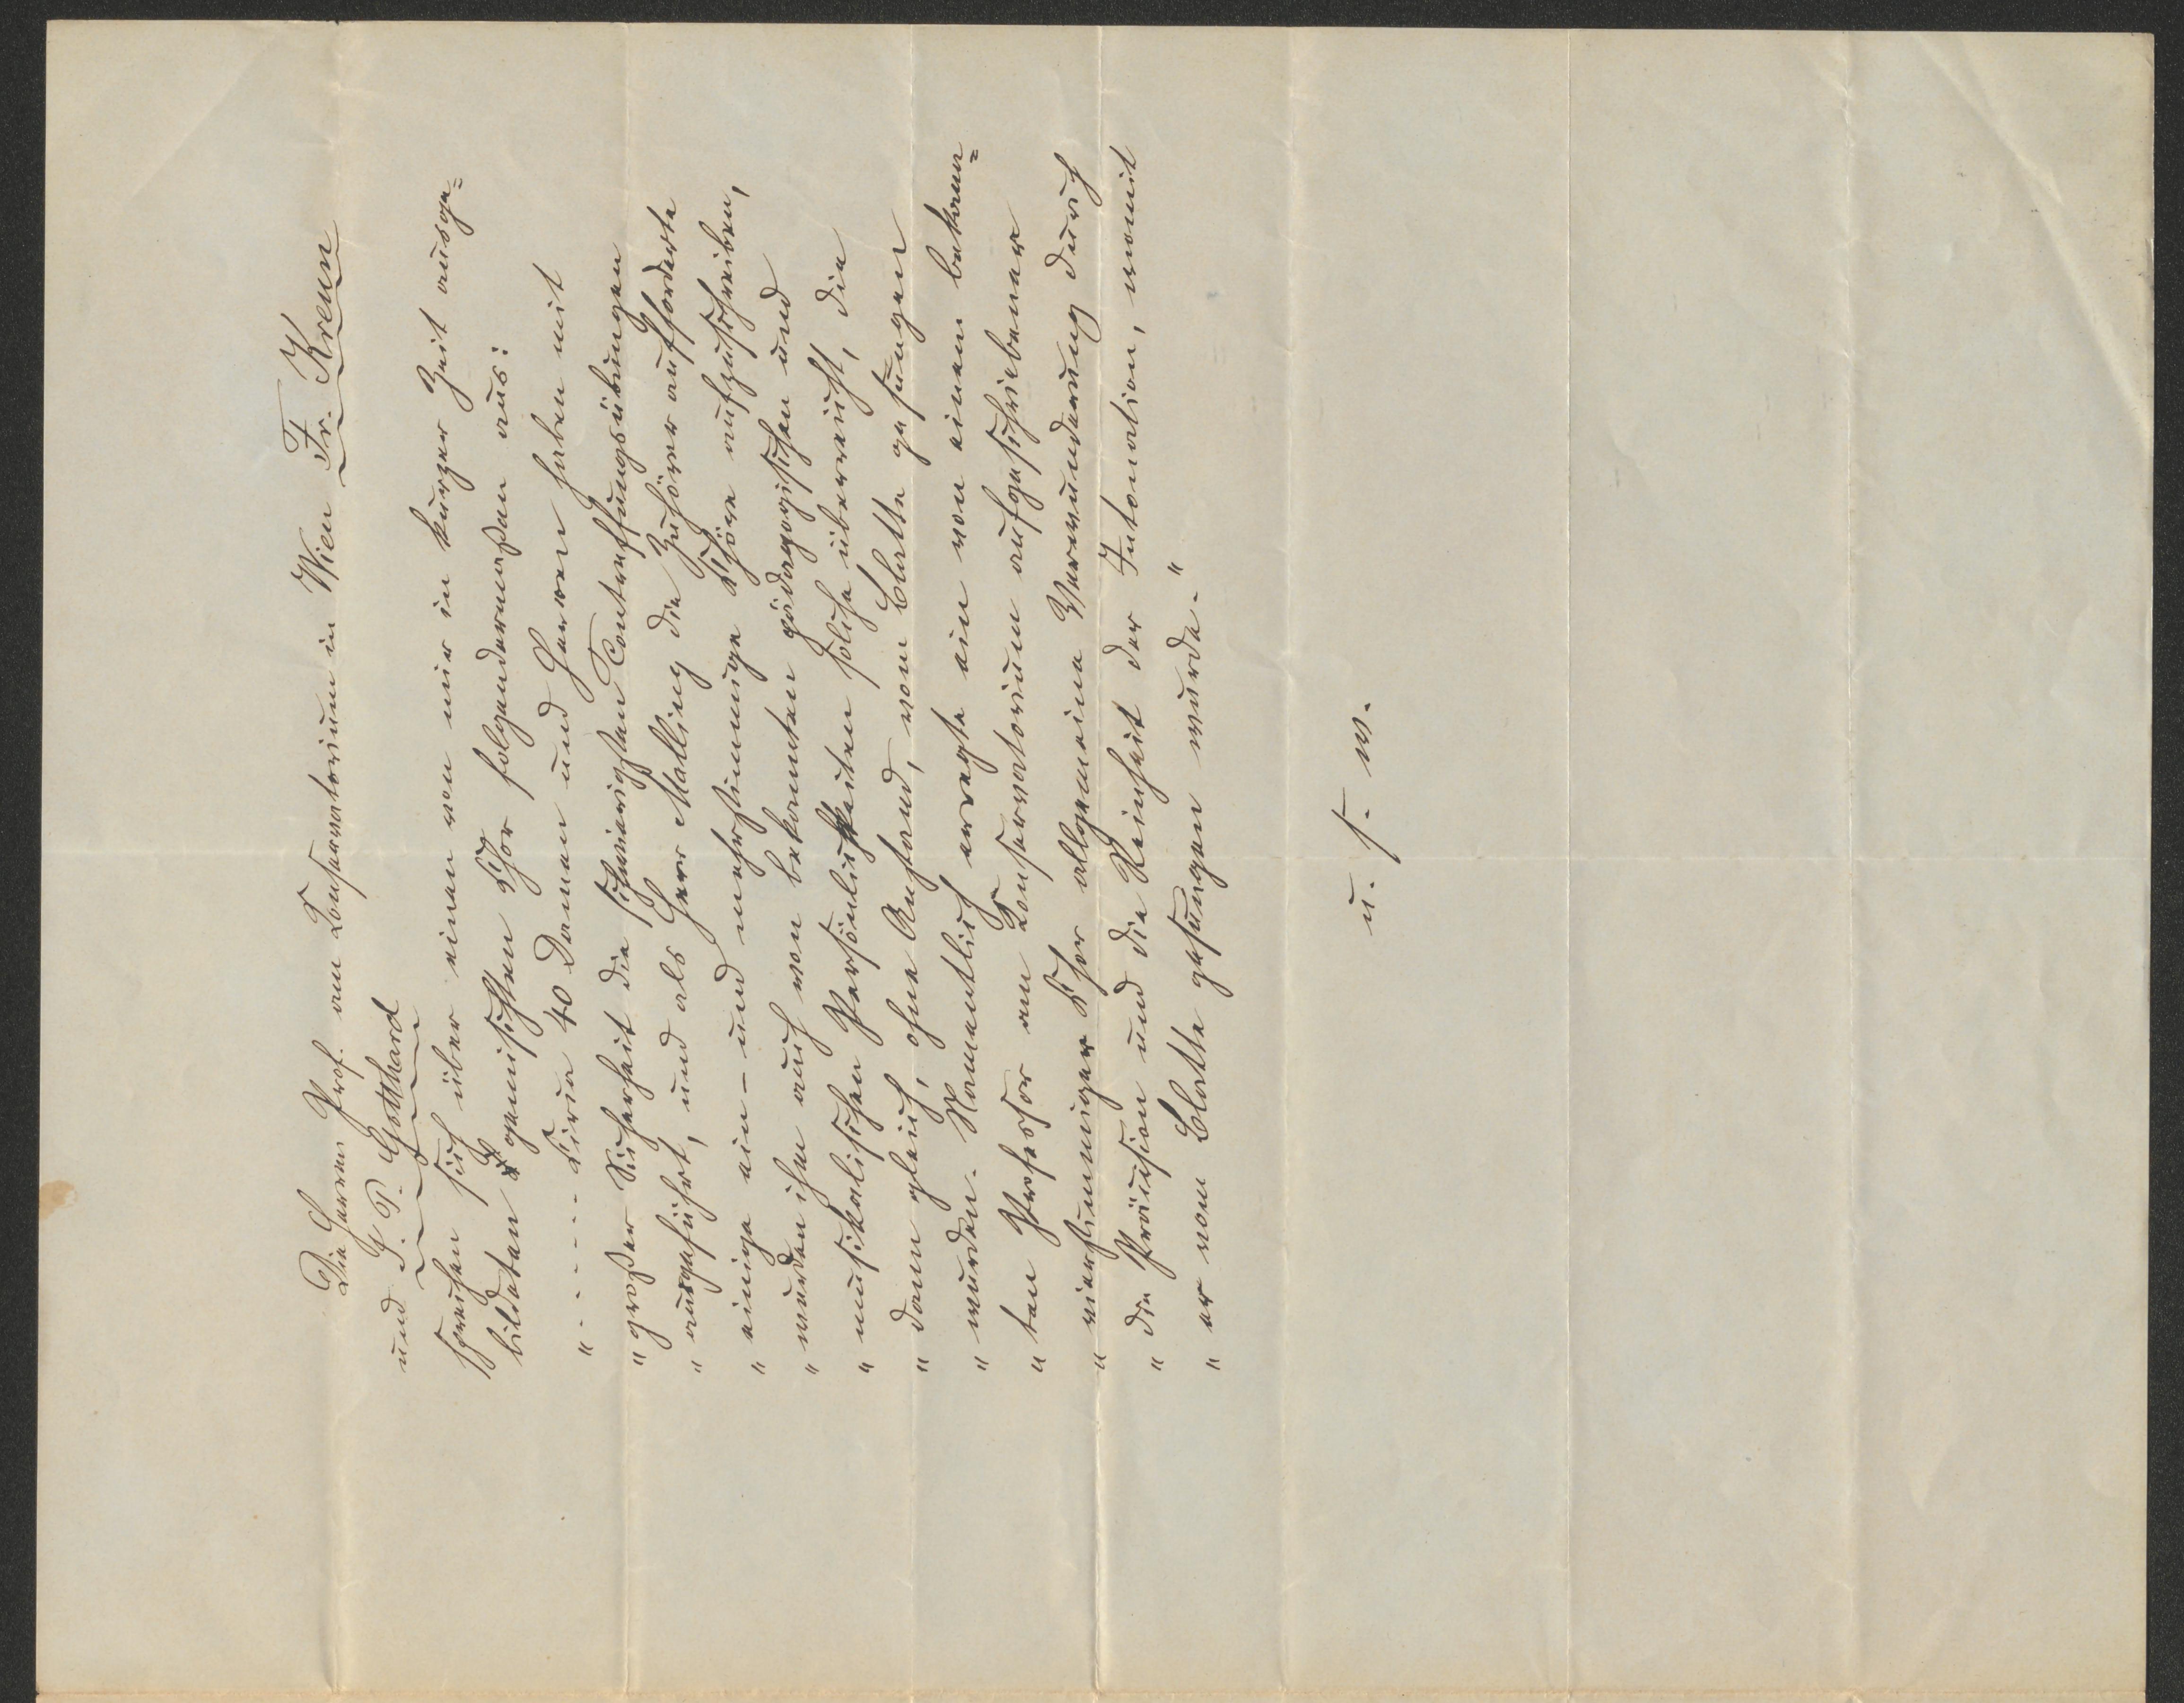 Die Herren Prof. am Konservatorium in Wien Fr. Krenn
und J. P. Gotthard
sprechen sich über einen von mir in kurzer Zeit ausge=
bildeten gemischten Chor folgendermaßen aus:
" - - - - - Circa 40 Damen und Herren haben mit
" großer Sicherheit die schwierigsten Contreffungsübungen
" ausgeführt, und als Herr Malling die Zuhörer aufforderte
" einige ein- und mehrstimmige Chöre aufzuschreiben,
" wurden ihm auch von bekannten pädagogischen und
" musikalischen Persönlichkeiten solche überreicht, die
" dann gleich, ohne Anstand, vom Blatte gesungen
" wurden. Namentlich erregte ein von einem bekann=
" ten Professor am Konservatorium aufgeschriebener
" vierstimmiger Chor allgemeine Verwunderung durch
" die Präcision und die Reinheit der Intonation, womit
" er vom Blatte gesungen wurde. "
u. s. w.